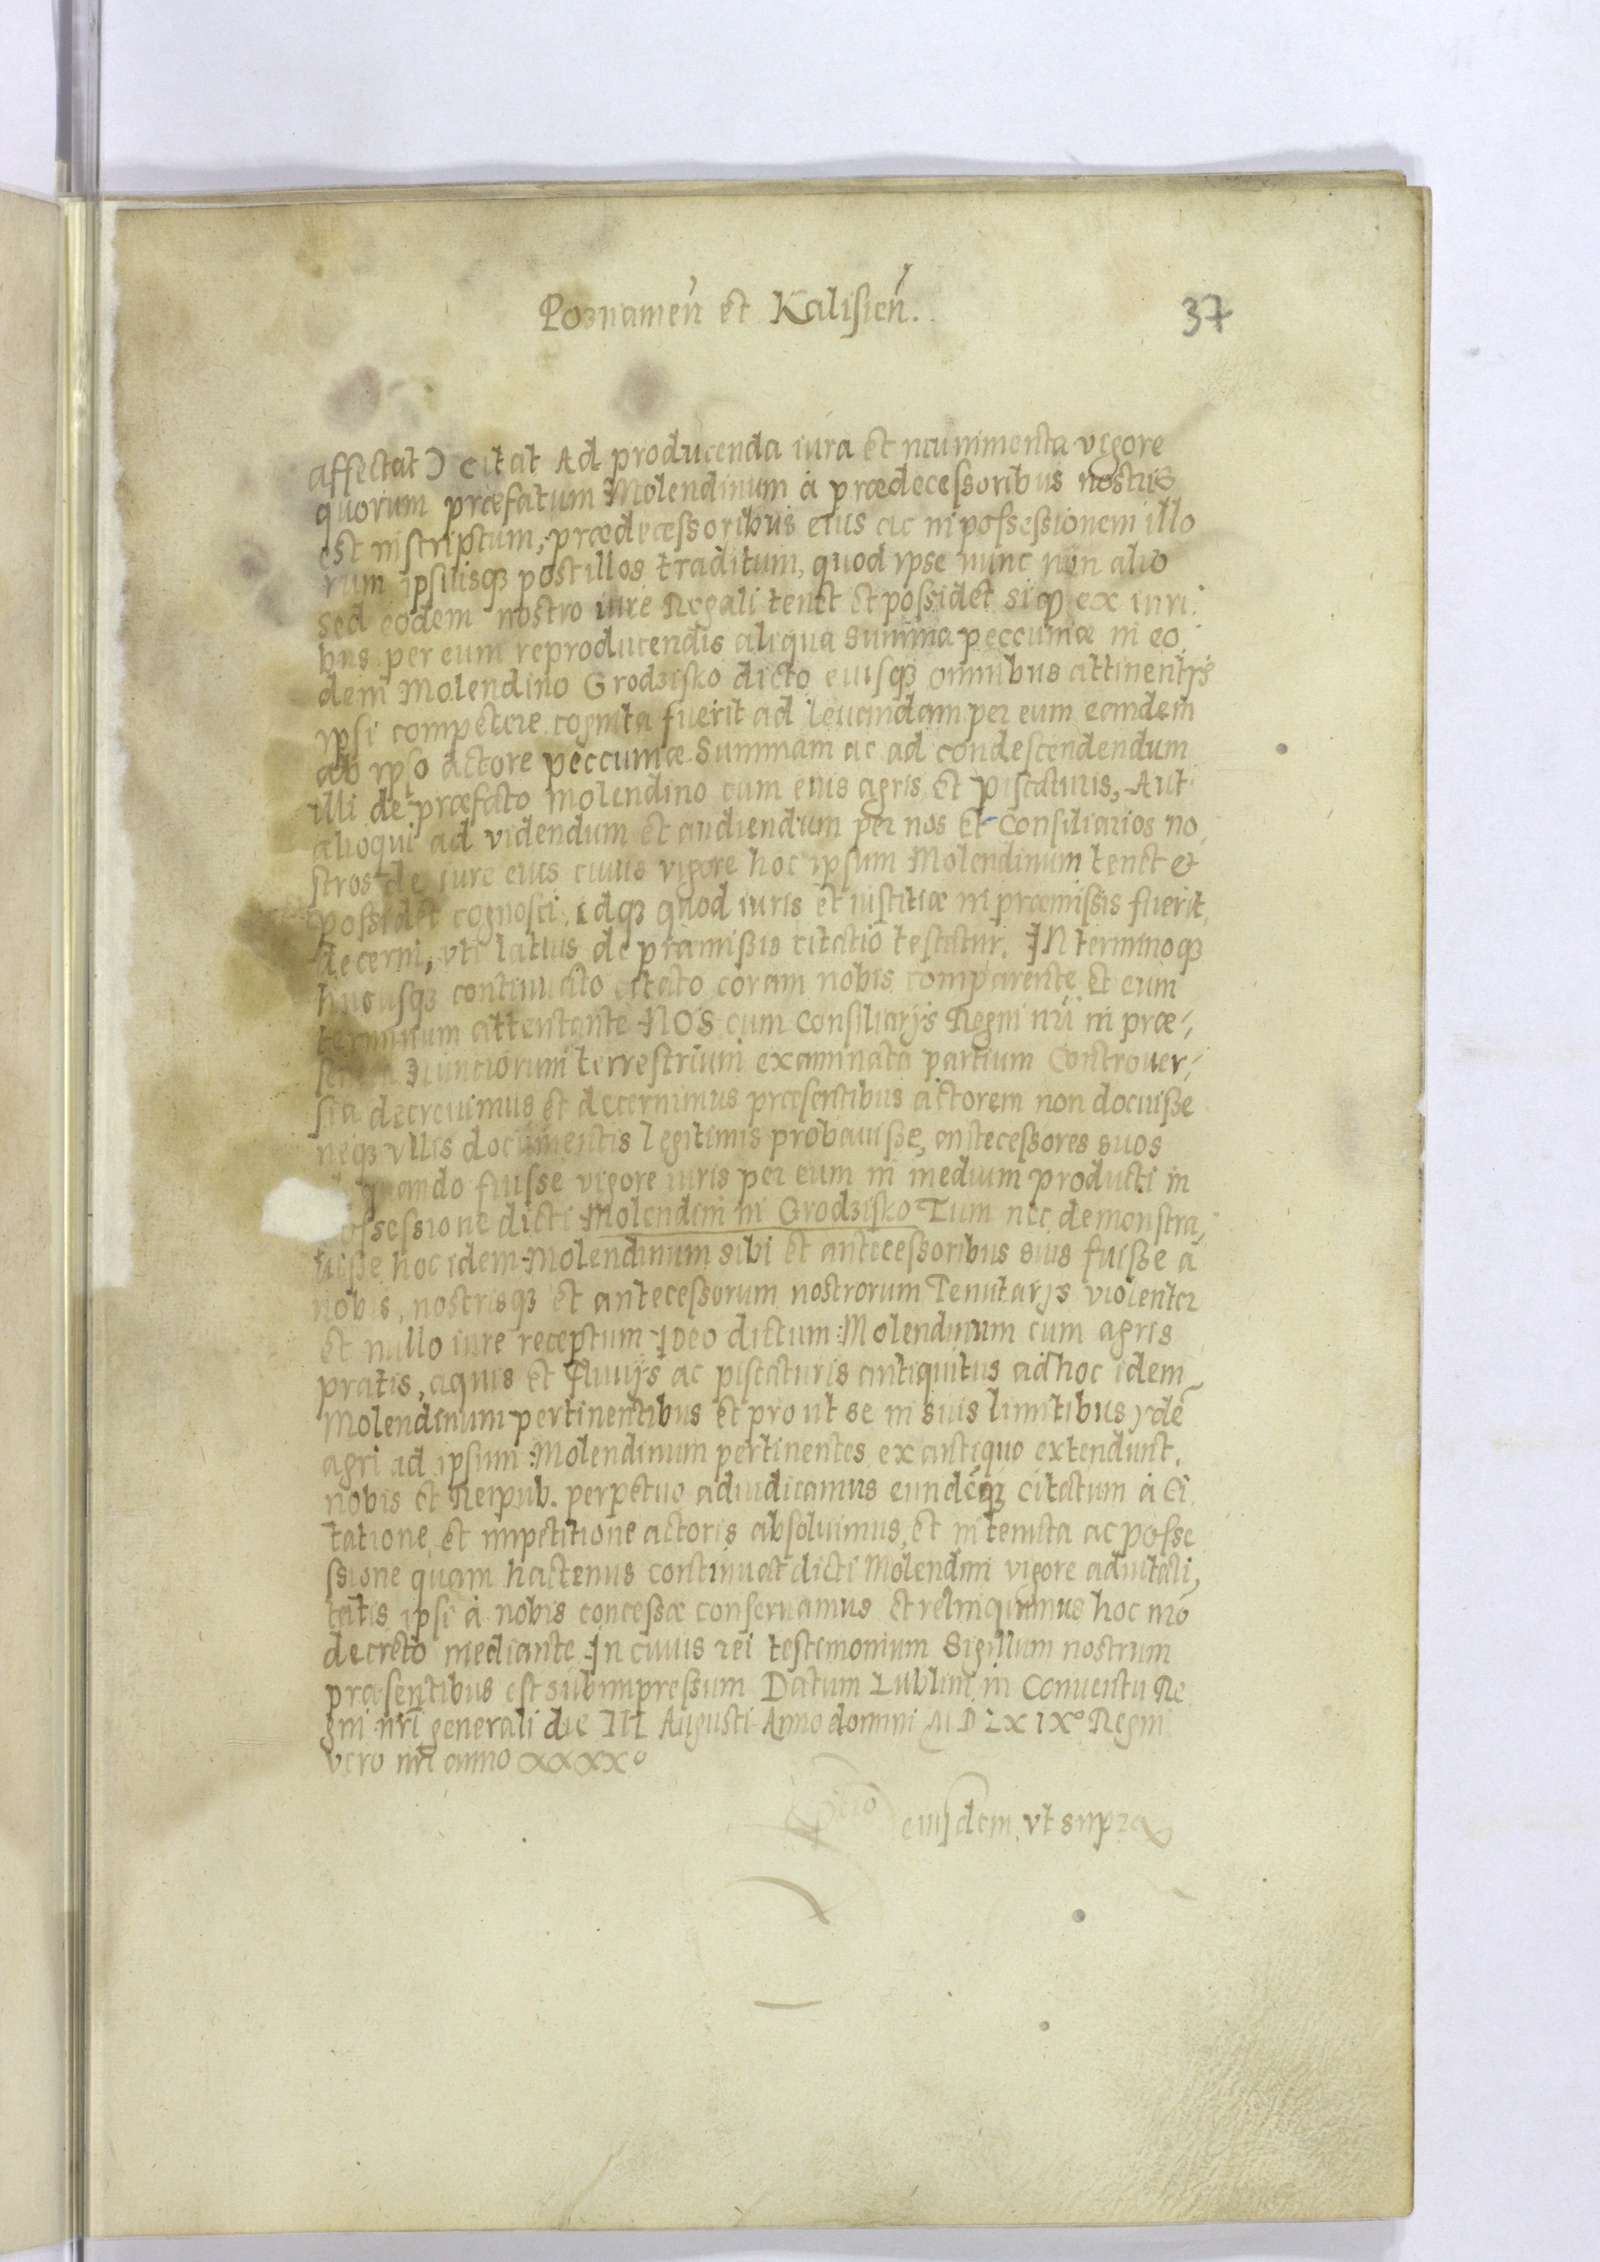 Poznanień et Kalisień.
37
affectat) citat Ad producenda iura et munimenta vigore
quorum præfatum Molendinum à prædecessoribus nostris
est inscriptum, prædecessoribus eius ac in possessionem illo
rum ipsiusq3 post illos traditum, quod ipse nunc non alio
sed eodem nostro iure Regali tenet et possidet siq3 ex iuri
bus per eum reproducendis aliqua summa peccuniæ in eo
dem Molendino Grodzisko dicto eiusq3 omnibus attinentijs
ypsi competere cognita fuerit ad leuandam per eum eandem
ab ypso actore peccuniæ Summam ac ad condescendendum
illi de præfato molendino cum eius agris et piscaturis, Aut
alioqui ad videndum et audiendum per nos et Consiliarios no
stros de iure eius cuius vigore hoc ipsum Molendinum tenet et
possidet cognosci, idq3 quod iuris et iustitiæ in præmissis fuerit
decerni, vti latius de præmissis citatio testatur. IN terminoq3
hucusq3 continuato citato coram nobis comparente et eum
terminum attentante NOS cum Consiliarijs Regni nri in præ,
Nunciorum terrestrium examinata partium Controuer,
sia decreuimus et decernimus præsentibus actorem non docuisse
neq3 vllis documentis legitimis probauisse, antecessores suos
fuisse vigore iuris per eum in medium producti in
ossessione dicti Molendini in Grodzisko Tum nec demonstra,
uisse hoc idem Molendinum sibi et antecessoribus suis fuisse à
nobis, nostrisq3 et antecessorum nostrorum Tenutarijs violenter
et nullo iure receptum Ideo dictum Molendinum cum agris
pratis, aquis et fluuijs ac piscaturis antiquitus ad hoc idem
Molendinum pertinentibus et pro ut se in suis limitibus ydē
agri ad ipsum Molendinum pertinentes ex antiquo extendunt.
nobis et Reipub. perpetuo adiudicamus eundēq3 citatum à Ci
tatione et impetitione actoris absoluimus, et in tenuta ac posse
ssione quam hactenus continuat dicti Molendini vigore aduitali,
tatis ipsi à nobis concessæ conseruamus et relinquimus hoc nrō
decreto mediante In cuius rei testimonium Sigillum nostrum
præsentibus est subimpressum Datum Lublini in Conuentu Re
gni nri generali die III Augusti Anno domini MDLXIXº Regni
vero nri anno XXXXº
eiusdem, vt supra